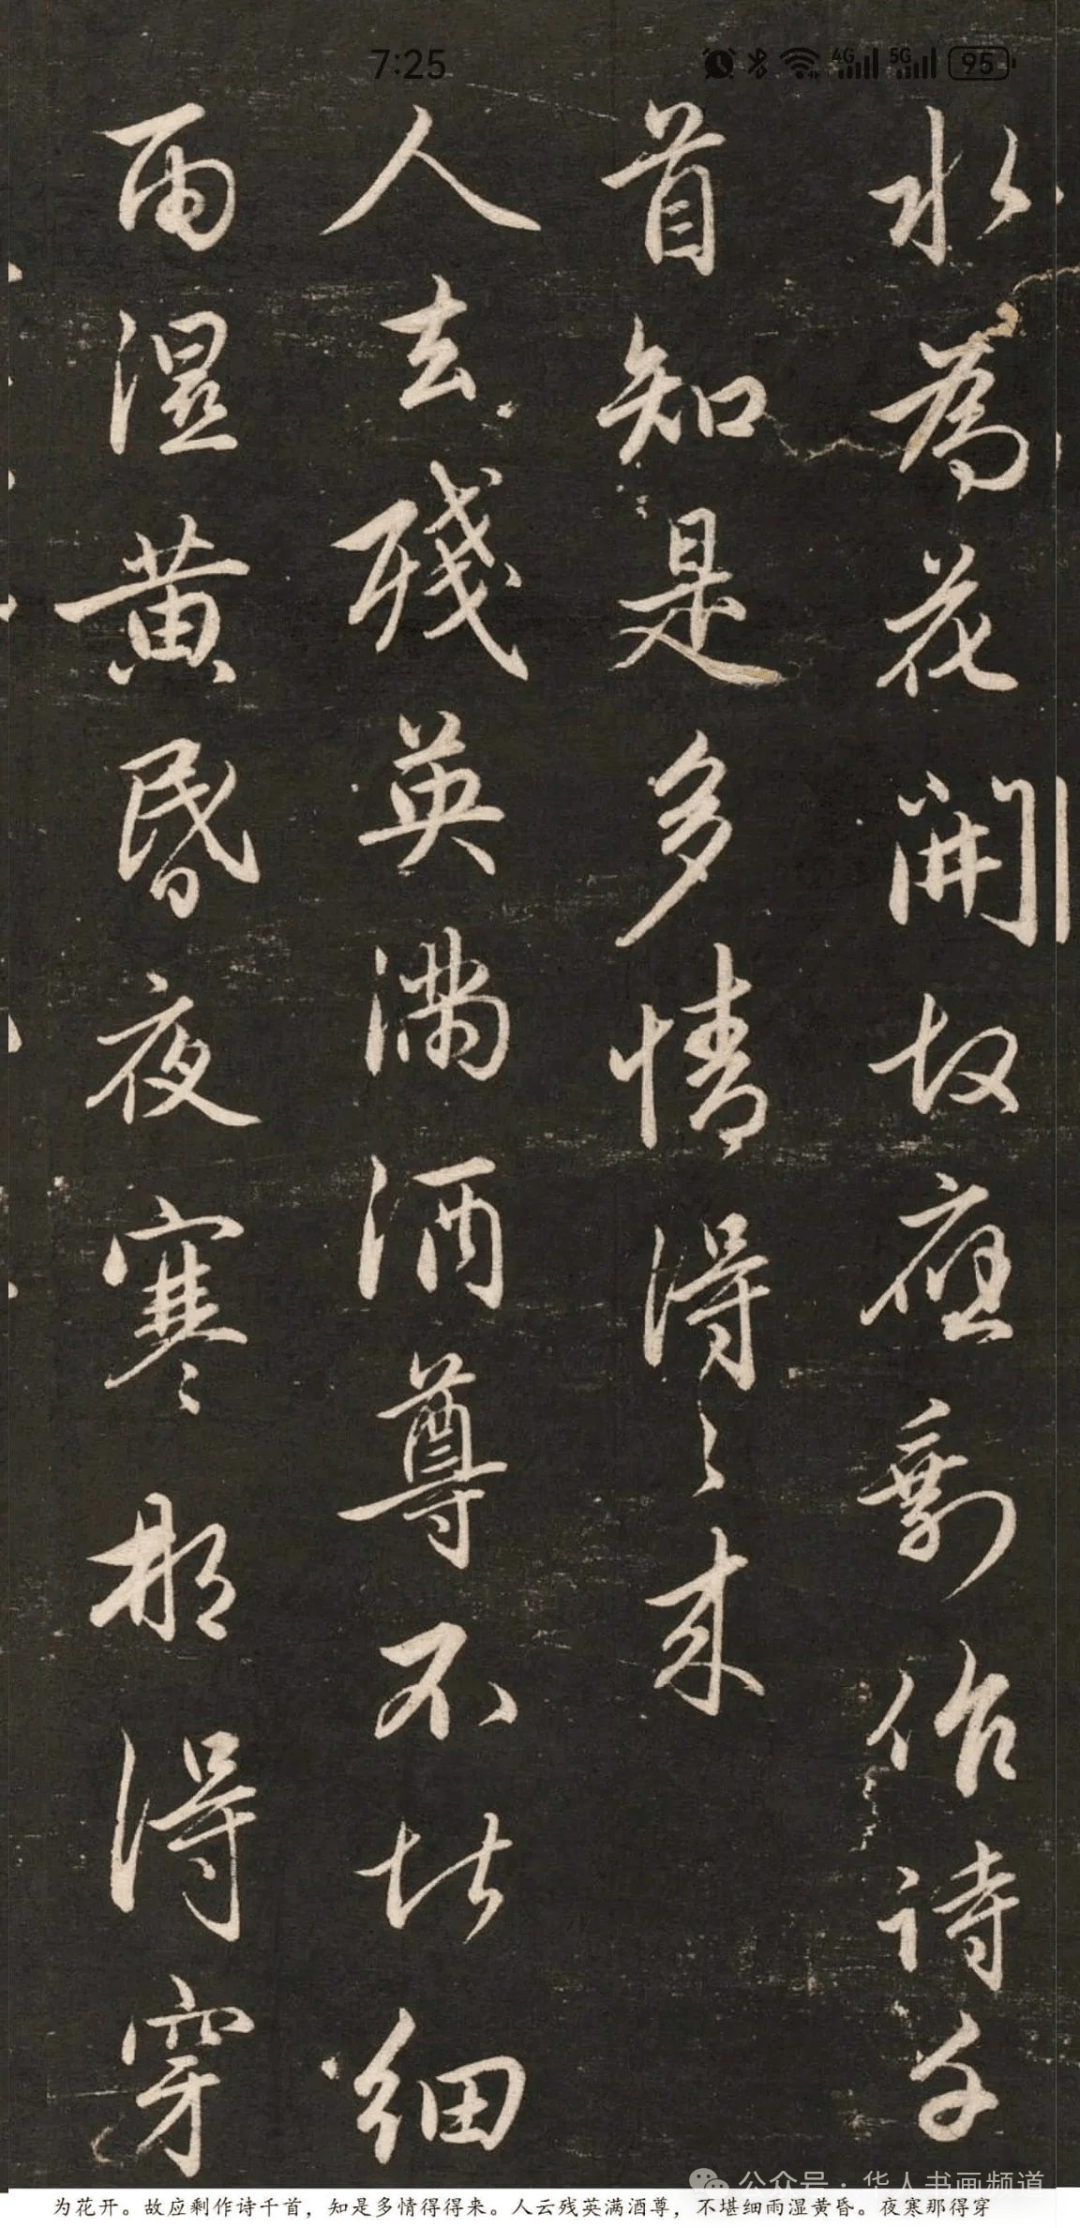 7:25 4G 5G 95
水為花開故應剩作詩千
首知是多情得〻来
人去殘英滿酒尊不堪細
雨濕黄昏夜寒那得穿
公众号 · 华人书画频道
为花开。故应剩作诗千首，知是多情得得来。人云残英满酒尊，不堪细雨湿黄昏。夜寒那得穿